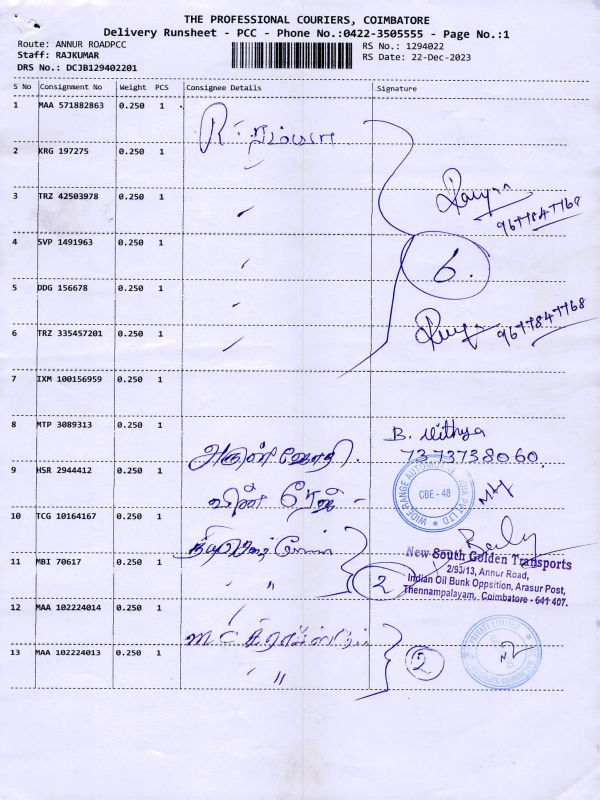 THE PROFESSIONAL COURIERS, COIMBATORE
Delivery Runsheet - PCC - Phone No.:0422-3505555 - Page No.:1
Route: ANNUR ROADPCC
RS No.: 1294022
Staff: RAJKUMAR
RS Date: 22-Dec-2023
DRS No.: DCJB129402201
S No Consignment No Weight PCS Consignee Details Signature
1 MAA 571882863 0.250 1
2 KRG 197275 0.250 1
3 TRZ 42503978 0.250 1
9677847768
4 SVP 1491963 0.250 1
6.
5 DDG 156678 0.250 1
6 TRZ 335457201 0.250 1
9677847768
7 IXM 100156959 0.250 1
8 MTP 3089313 0.250 1
B. Nithya
அருண் ஜோதி.
7373738060.
9 HSR 2944412 0.250 1
CBE - 48
10 TCG 10164167 0.250 1
New South Golden Transports
11 MBI 70617 0.250 1
" 2
2/93/13, Annur Road,
Indian Oil Bunk Oppsition, Arasur Post,
Thennampalayam, Coimbatore - 641 407.
12 MAA 102224014 0.250 1
13 MAA 102224013 0.250 1
" 2